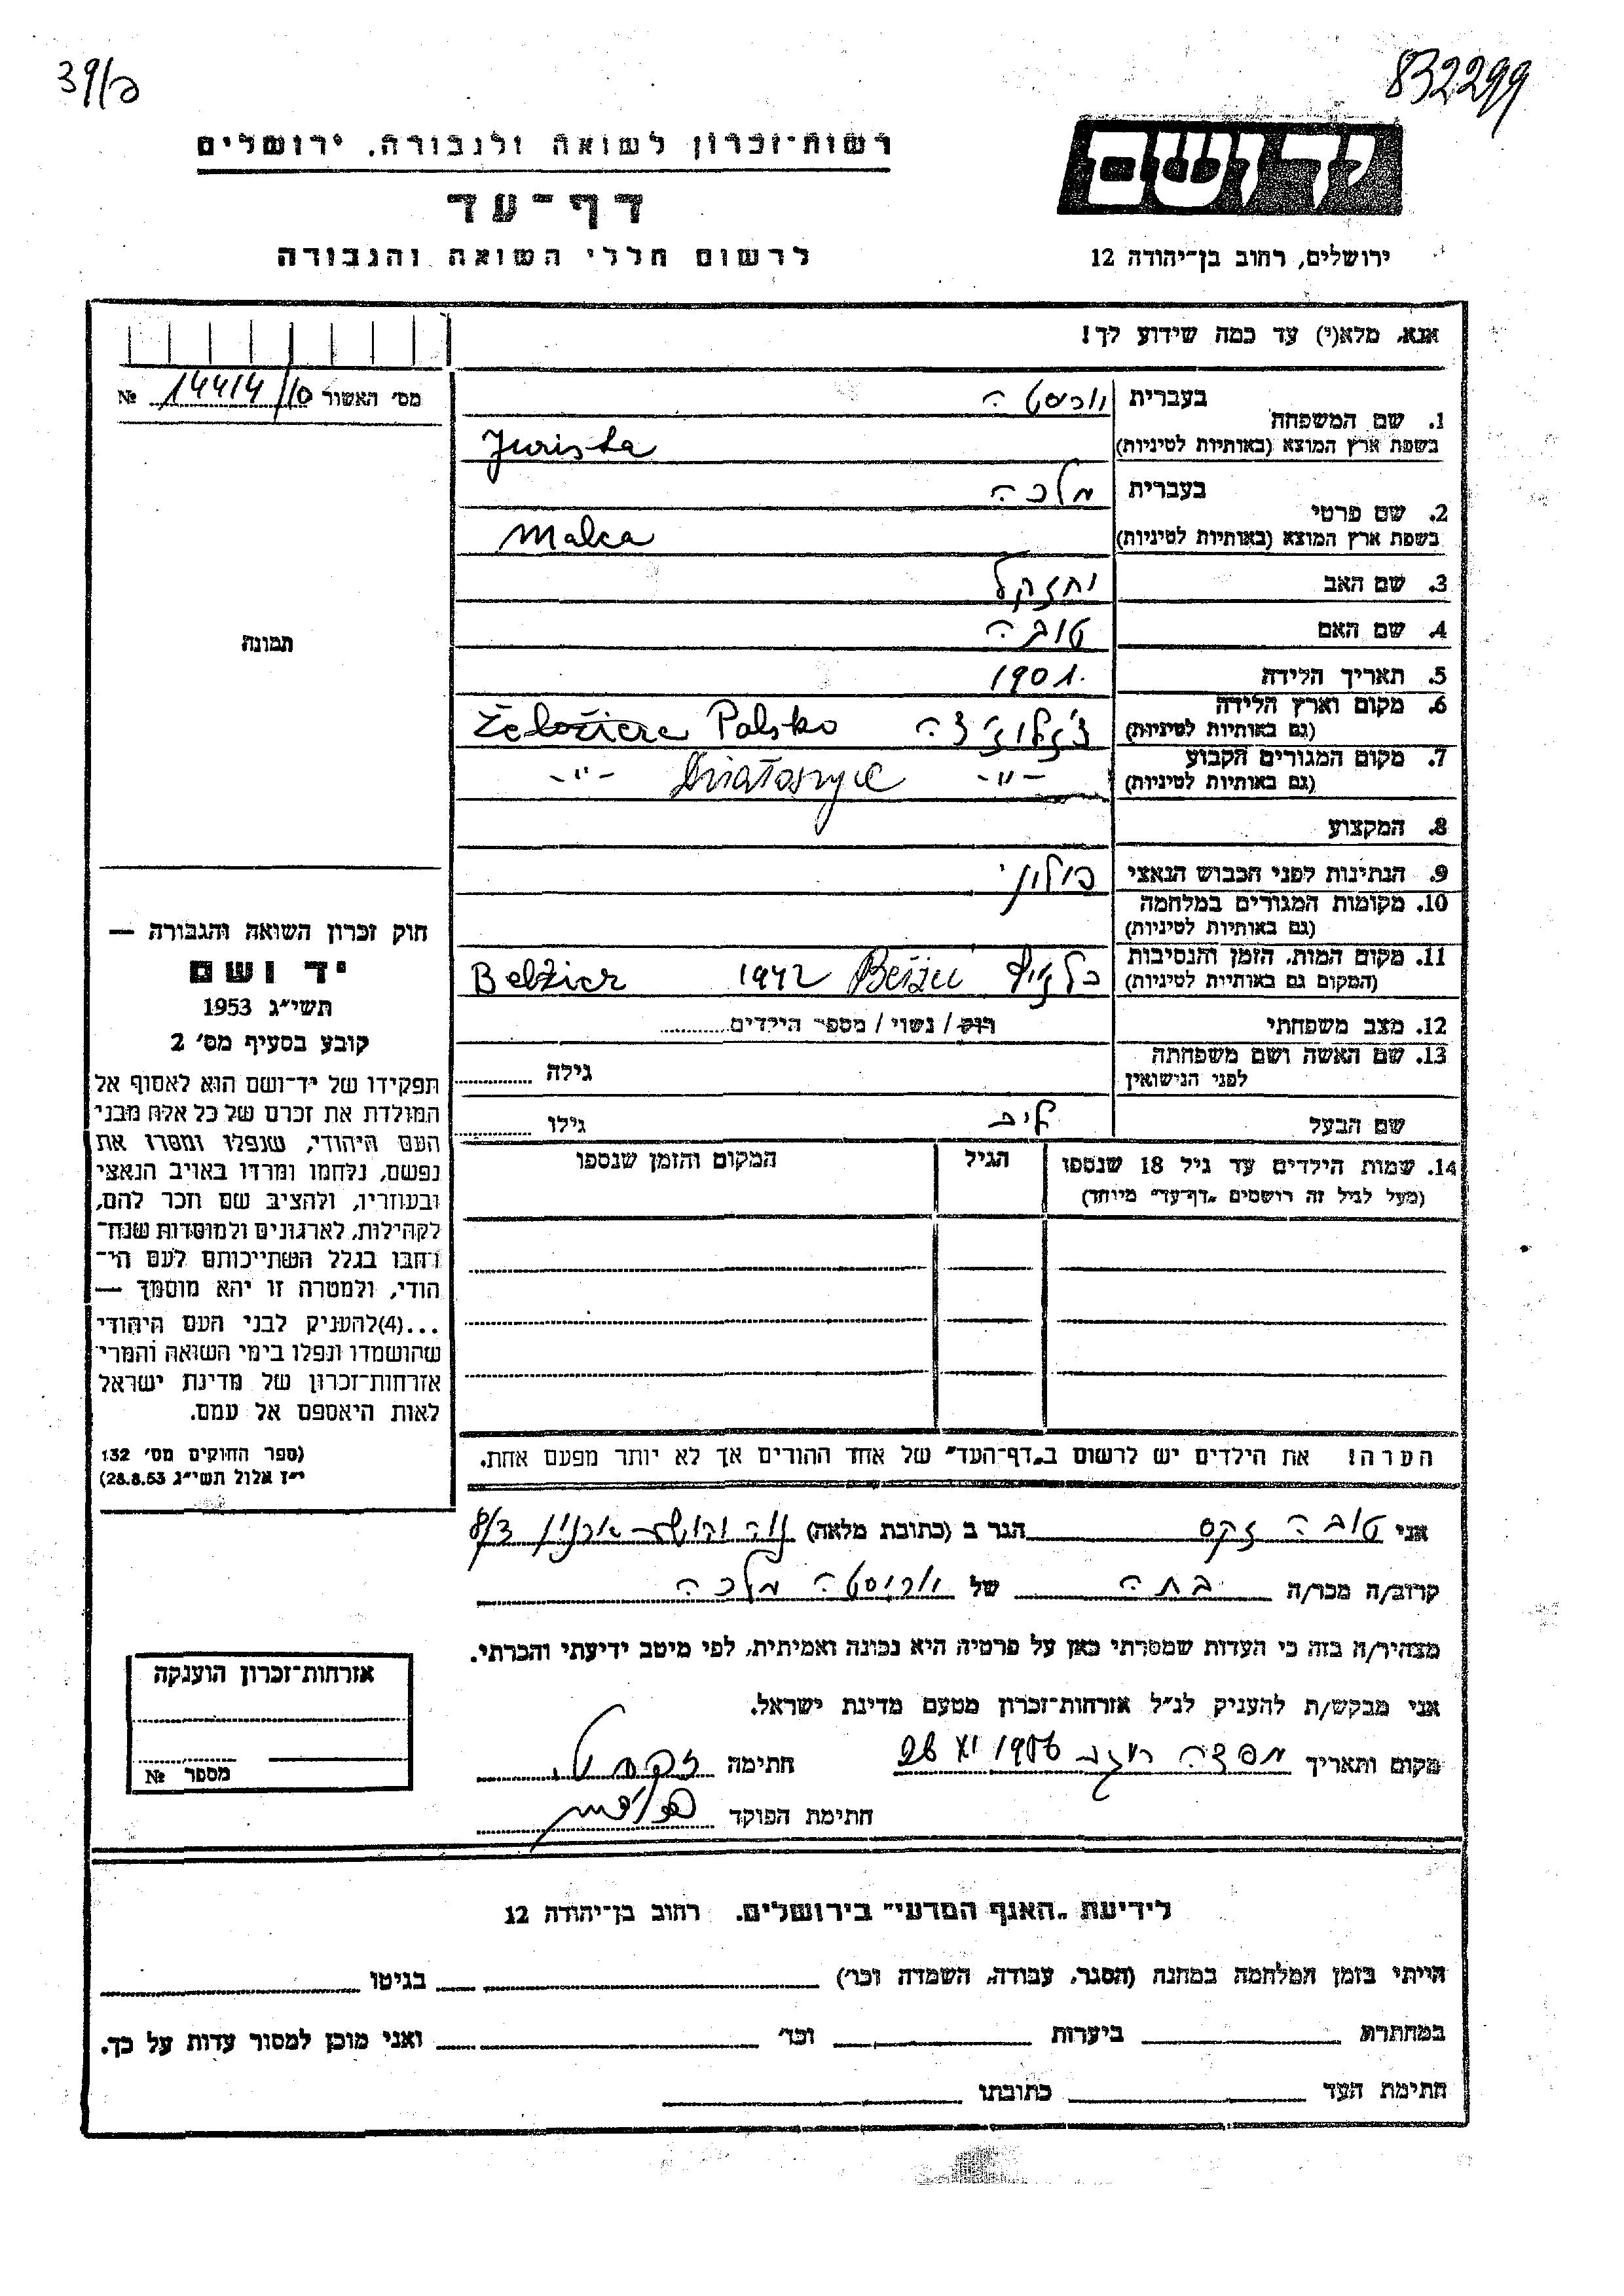 39/ג
832299
רשות-זכרון לשואה ולגבורה. ירושלים
דף-עד
לרשום חללי השואה והגבורה
יד ושם
ירושלים, רחוב בן-יהודה 12
אנא. מלא(י) עד כמה שידוע לך!
מס׳ האשור 14414/10 №
תמונה
1. שם המשפחה
בעברית יוריסטה
בשפת ארץ המוצא (באותיות לטיניות) Jurista
2. שם פרטי
בעברית מלכה
בשפת ארץ המוצא (באותיות לטיניות) Malca
3. שם האב יחזקל
4. שם האם טובה
5. תאריך הלידה 1901.
6. מקום וארץ הלידה
(גם באותיות לטיניות) Palsko
7. מקום המגורים הקבוע
(גם באותיות לטיניות) -"- -"-
8. המקצוע
9. הנתינות לפני הכבוש הנאצי פולני
10. מקומות המגורים במלחמה
(גם באותיות לטיניות)
11. מקום המות. הזמן והנסיבות
(המקום גם באותיות לטיניות) 1942
12. מצב משפחתי רוק / נשוי / מספר הילדים
13. שם האשה ושם משפחתה
לפני הנישואין גילה
שם הבעל ליב גילו
14. שמות הילדים עד גיל 18 שנספו הגיל המקום והזמן שנספו
(מעל לגיל זה רושמים „דף-עד" מיוחד)
הערה! את הילדים יש לרשום ב„דף-העד" של אחד ההורים אך לא יותר מפעם אחת.
חוק זכרון השואה והגבורה —
יד ושם
תשי״ג 1953
קובע בסעיף מס׳ 2
תפקידו של יד-ושם הוא לאסוף אל
המולדת את זכרם של כל אלה מבני
העם היהודי, שנפלו ומסרו את
נפשם, נלחמו ומרדו באויב הנאצי
ובעוזריו, ולהציב שם וזכר להם,
לקהילות, לארגונים ולמוסדות שנח-
רבו בגלל השתייכותם לעם הי-
הודי, ולמטרה זו יהא מוסמך —
...(4)להעניק לבני העם היהודי
שהושמדו ונפלו בימי השואה והמרי
אזרחות-זכרון של מדינת ישראל
לאות היאספם אל עמם.
(ספר החוקים מס׳ 132
י״ז אלול תשי״ג 28.8.53)
אני טובה זקס הגר ב (כתובת מלאה) 8/3
קרוב/ה מכר/ה בתה של יוריסטה מלכה
מצהיר/ה בזה כי העדות שמסרתי כאן על פרטיה היא נכונה ואמיתית, לפי מיטב ידיעתי והכרתי.
אני מבקש/ת להעניק לנ״ל אזרחות-זכרון מטעם מדינת ישראל.
מקום ותאריך XI 1956 חתימה
חתימת הפוקד
אזרחות-זכרון הוענקה
מספר №
לידיעת „האגף המדעי" בירושלים. רחוב בן-יהודה 12
הייתי בזמן המלחמה במחנה (הסגר, עבודה, השמדה וכו׳) בגיטו
במחתרת ביערות וכו׳ ואני מוכן למסור עדות על כך.
חתימת העד כתובתו